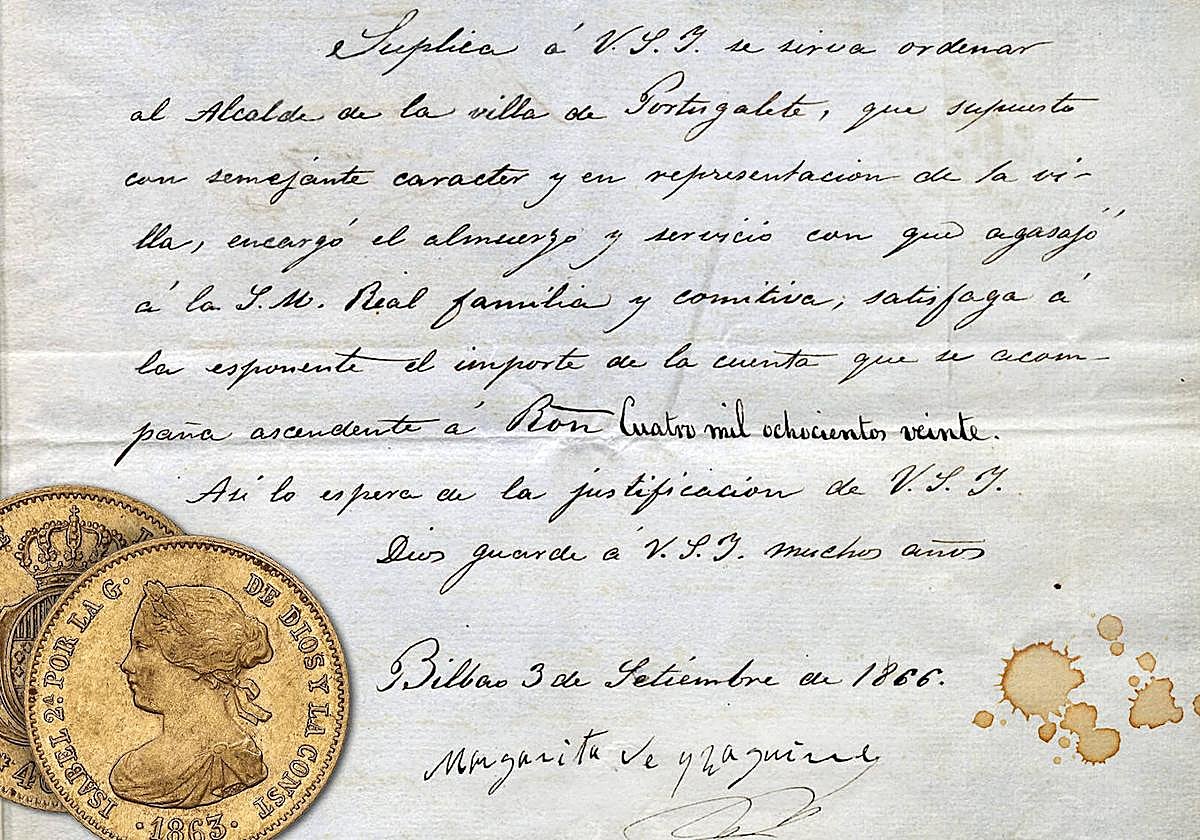 Suplica á V. S. I. se sirva ordenar
al Alcalde de la villa de Portugalete, que supuesto
con semejánte caracter y en representacion de la vi-
lla, encargó el almuerzo y servicio con que agasajó
á la S. M. Real família y comitiva, satisfaga á
la esponente el importe de la cuenta que se acom-
paña ascendente á Rvon Cuatro mil ochocientos veinte.
Asi lo espera de la justificacion de V. S. I.
Dios guarde á V. S. I. muchos años
Bilbao 3 de Setiembre de 1866.
Margarita de Yzaguirre
ISABEL 2ª POR LA G. DE DIOS Y LA CONST
·1863·